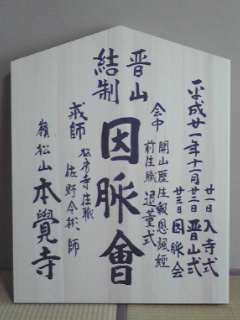 平成廿一年十一月
廿一日 入寺式
廿二日 晋山式
廿三日 因脈会
晋山
結制
因脈會
会中
開山歴住報恩諷経
前住職 退董式
戒師
寺住職
佐野令彬師
松山 本覺寺